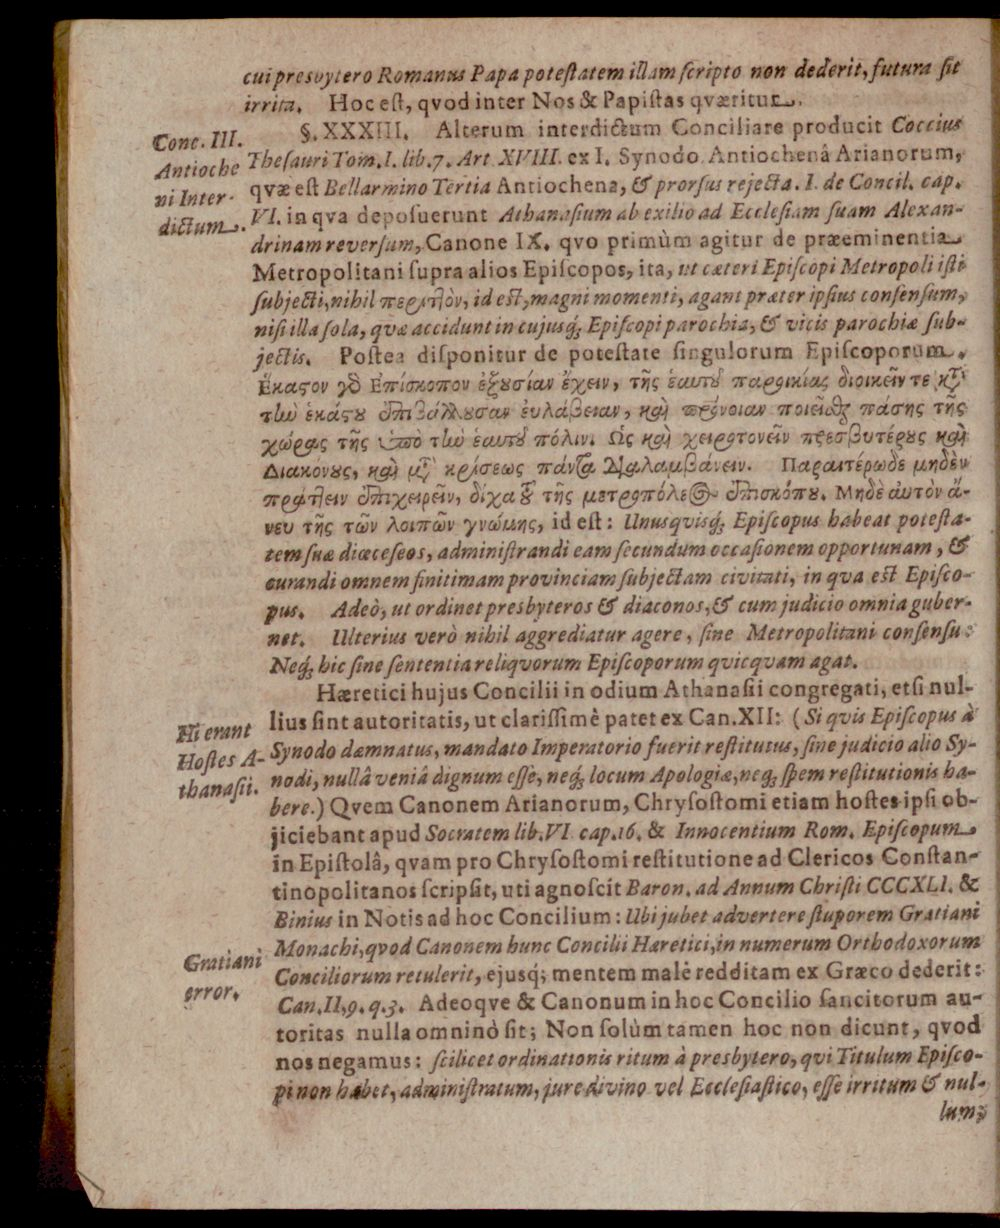 cui presbytero Romanus Papa poteſtatem illam ſcripto non dederit, futura ſit
irrita. Hoc eſt, qvod inter Nos & Papiſtas qværitur.
Conc. III.
Antioche
ni Inter-
dictum.
§. XXXIII. Alterum interdictum Conciliare producit Coccius
Theſauri Tom. I. lib. 7. Art XVIII. ex I. Synodo Antiochenâ Arianorum,
qvæ eſt Bellarmino Tertia Antiochena, & prorſus rejecta. I. de Concil. cap.
VI. in qva depoſuerunt Athanaſium ab exilio ad Eccleſiam ſuam Alexan-
drinam reverſum, Canone IX. qvo primùm agitur de præeminentia
Metropolitani ſupra alios Epiſcopos, ita, ut cæteri Epiſcopi Metropoli iſti
ſubjecti, nihil περιτ]ὸν, id eſt, magni momenti, agant præter ipſius conſenſum,
niſi illa ſola, quæ accidunt in cujusq́; Epiſcopi parochia, & vicis parochiæ ſub-
jectis. Poſtea diſponitur de poteſtate ſingulorum Epiſcoporum.
Ἕκαστον γὸ Ἐπίσκοπον ἐξουσίαν ἔχειν, τῆς ἑαυτοῦ παροικίας διοικεῖν τε κατὰ
τὴν ἑκάστου ἐπιβάλλουσαν ἐυλάβειαν, καὶ πρόνοιαν ποιεῖσθαι πάσης τῆς
χώρας τῆς ὑπὸ τὴν ἑαυτοῦ πόλιν. Ὡς καὶ χειροτονεῖν πρεσβυτέρους καὶ
Διακόνους, καὶ μετὰ κρίσεως πάντα διαλαμβάνειν. Παραιτέρωδε μηδὲν
πράττειν ἐπιχειρεῖν, δίχα τοῦ τῆς μετροπόλεως ἐπισκόπου. Μηδὲ ἀυτὸν ἄ-
νευ τῆς τῶν λοιπῶν γνώμης, id eſt: Unusquisq́; Epiſcopus habeat poteſta-
tem ſuæ diœceſeos, adminiſtrandi eam ſecundum occaſionem opportunam, &
curandi omnem finitimam provinciam ſubjectam civitati, in qva eſt Epiſco-
pus. Adeò, ut ordinet presbyteros & diaconos, & cum judicio omnia guber-
net. Ulterius verò nihil aggrediatur agere, ſine Metropolitani conſenſu:
Neq́; hic ſine ſententia reliqvorum Epiſcoporum qvicqvam agat.
Hæretici hujus Concilii in odium Athanaſii congregati, etſi nul-
Hi erant
Hoſtes A-
thanaſii.
lius ſint autoritatis, ut clariſſimè patet ex Can. XII: (Si qvis Epiſcopus à
Synodo dæmnatus, mandato Imperatorio fuerit reſtitutus, ſine judicio alio Sy-
nodi, nullâ veniâ dignum eſſe, neq́; locum Apologiæ, neq́; ſpem reſtitutionis ha-
bere.) Qvem Canonem Arianorum, Chryſoſtomi etiam hoſtes ipſi ob-
jiciebant apud Socratem lib. VI cap. 16. & Innocentium Rom. Epiſcopum
in Epiſtolâ, qvam pro Chryſoſtomi reſtitutione ad Clericos Conſtan-
tinopolitanos ſcripſit, uti agnoſcit Baron. ad Annum Chriſti CCCXLI. &
Binius in Notis ad hoc Concilium: Ubi jubet advertere ſtuporem Gratiani
Gratiani
error.
Monachi, qvod Canonem hunc Concilii Hæretici, in numerum Orthodoxorum
Conciliorum retulerit, ejusq́; mentem malè redditam ex Græco dederit:
Can. II, 9. q. 3. Adeoqve & Canonum in hoc Concilio ſancitorum au-
toritas nulla omninò ſit; Non ſolùm tamen hoc non dicunt, qvod
nos negamus: ſcilicet ordinationis ritum à presbytero, qvi Titulum Epiſco-
pi non habet, adminiſtratum, jure divino vel Eccleſiaſtico, eſſe irritum & nul-
lum;